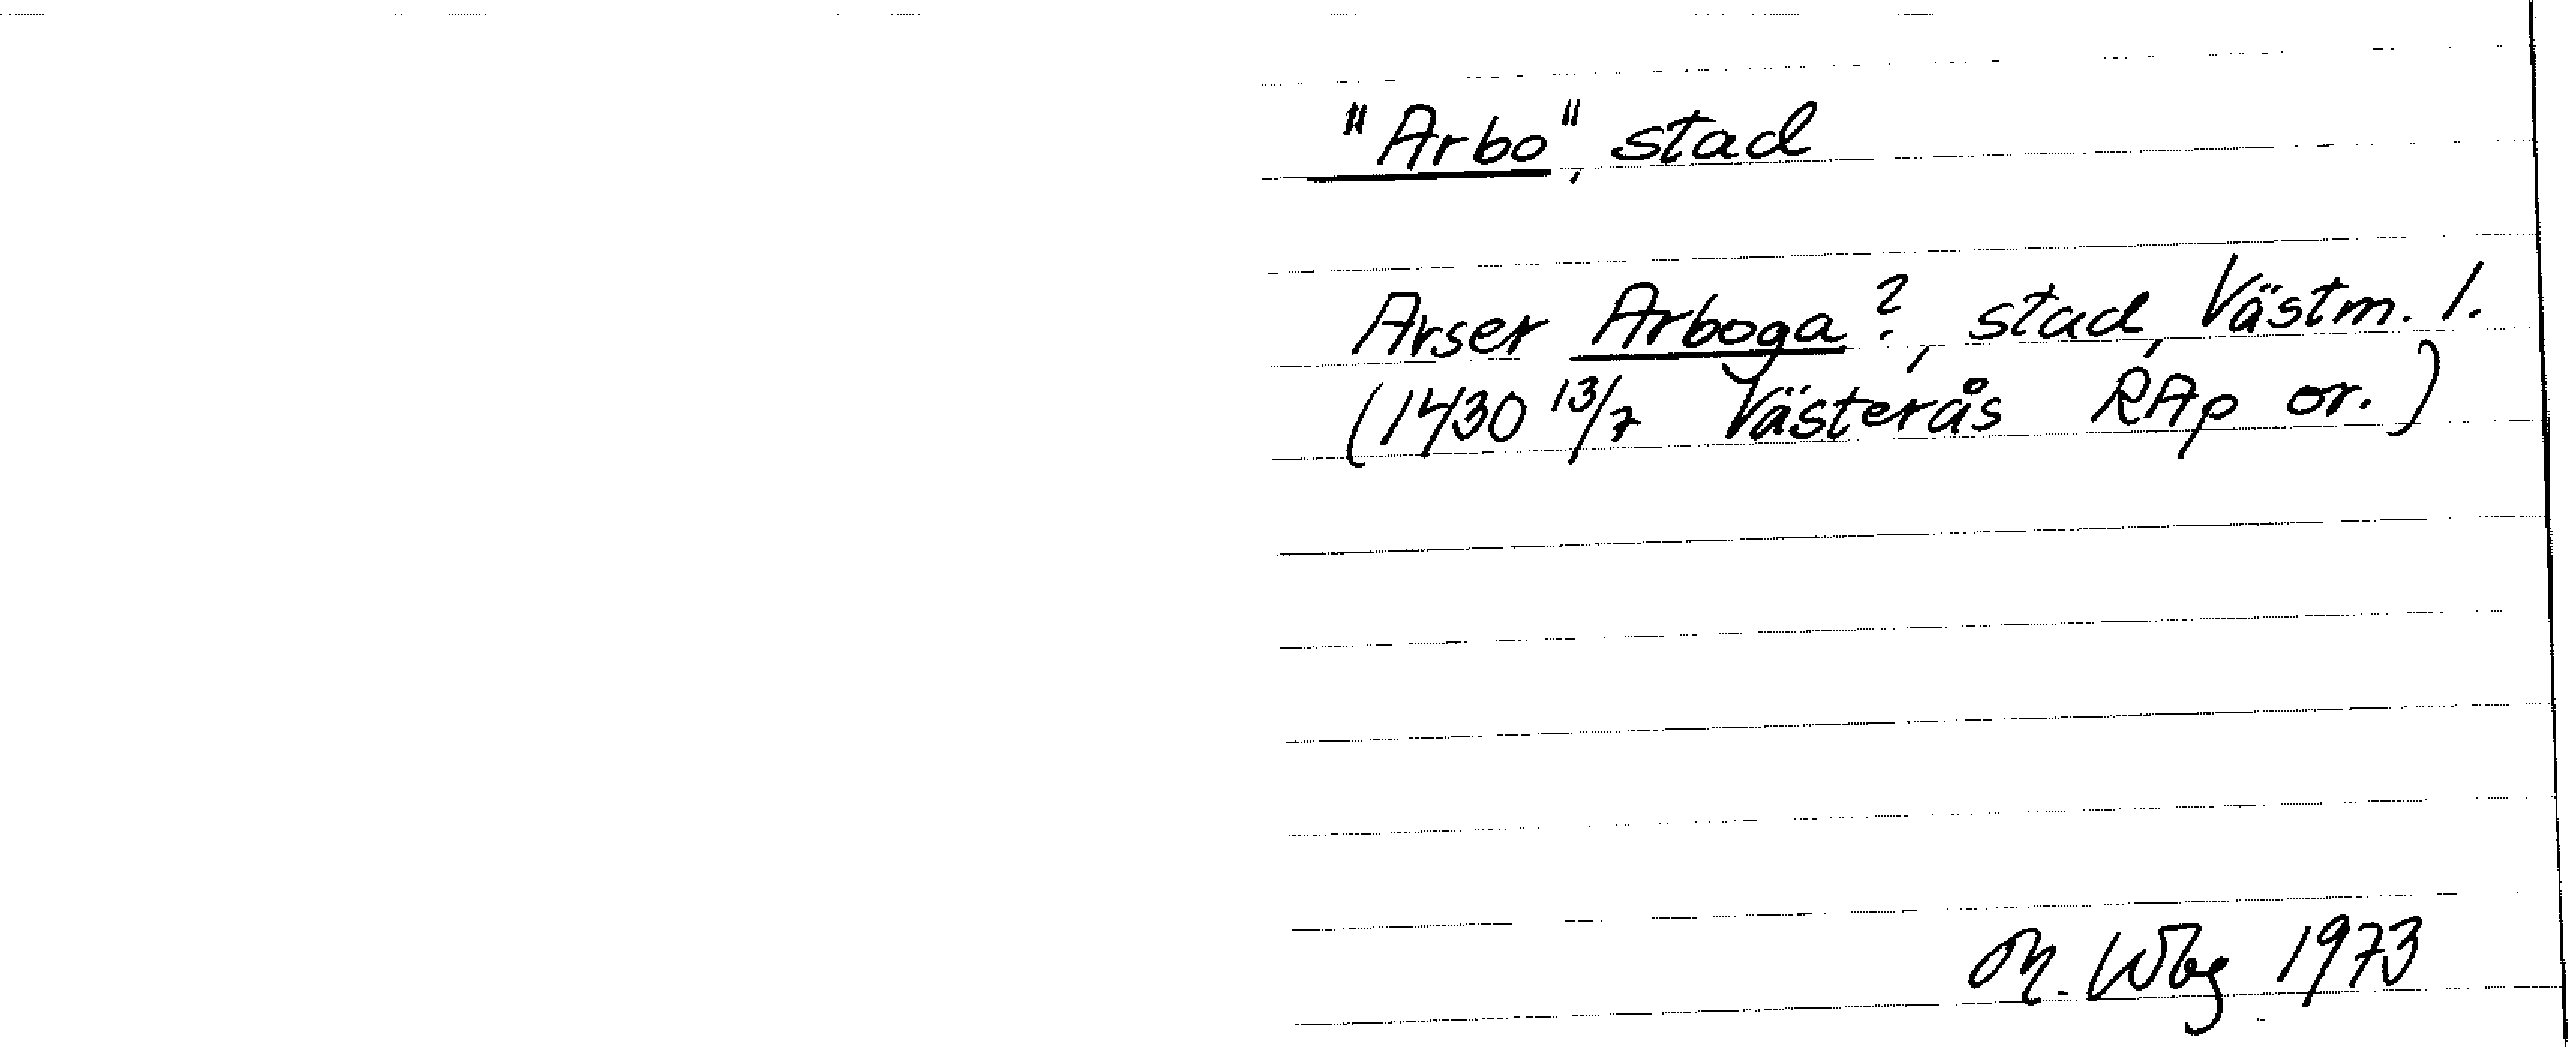 "Arbo", stad
Avser Arboga?, stad, Västm. l.
(1430 13/7 Västerås RAp or.)
M. Wbg 1973